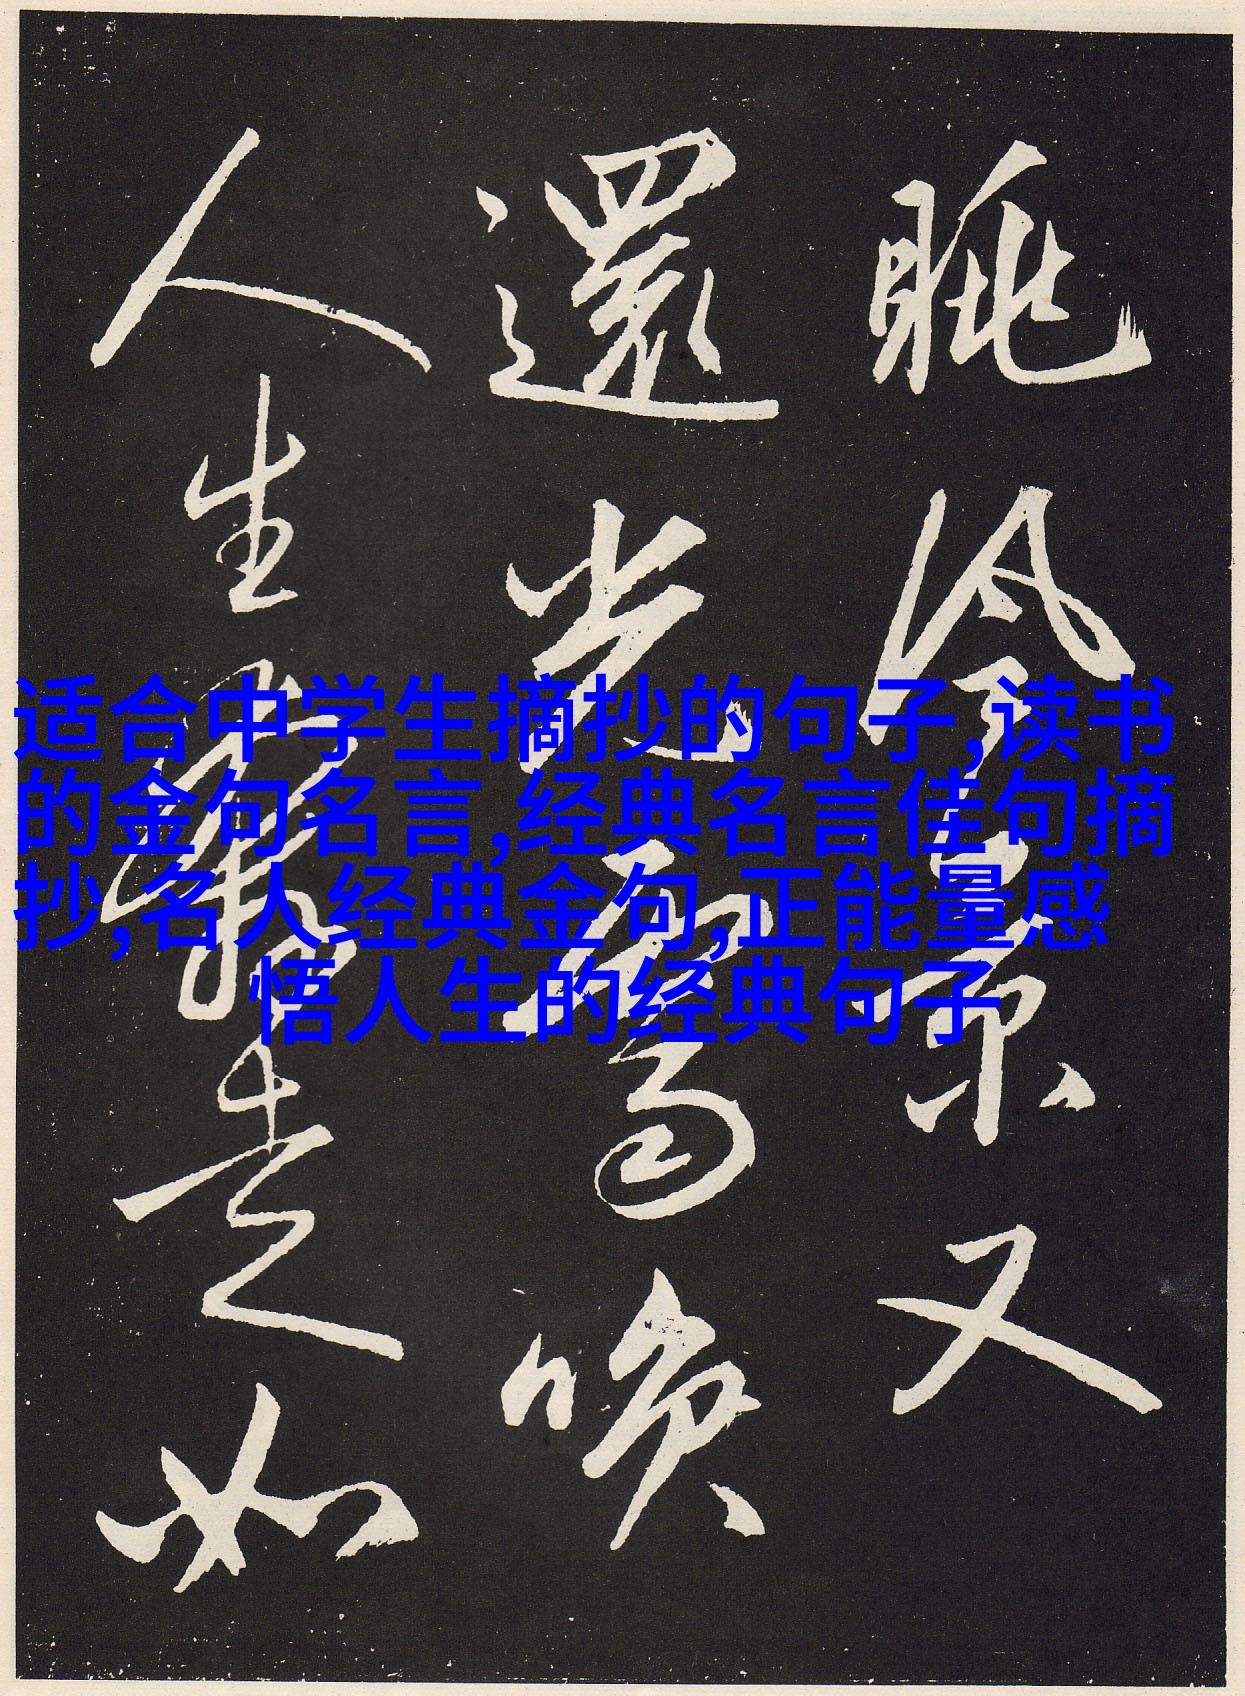 适合中学生摘抄的句子,读书
的金句名言,经典名言佳句摘
抄,名人经典金句,正能量感
悟人生的经典句子
眺冷景又
還光喚
人生去如